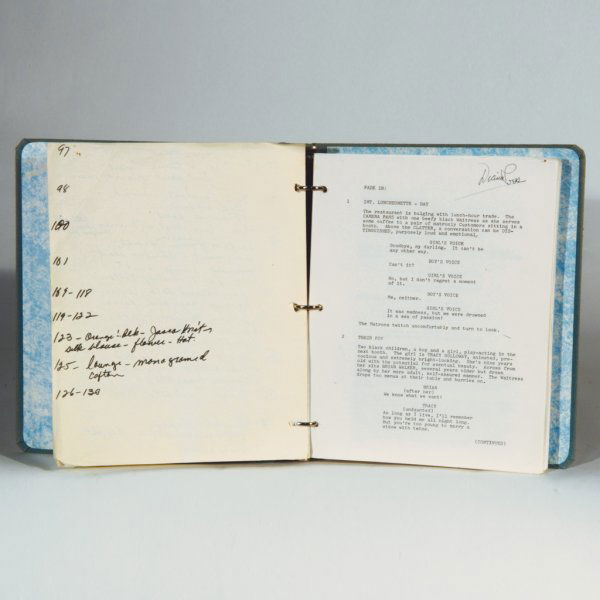 97
98
100
101
109-118
119-122
123 - Orange
silk blouse - flower - Hat
125 - lounge - monogramed
Caftan
126-130
Diana Ross
FADE IN:
1 INT. LUNCHEONETTE - DAY
The restaurant is bulging with lunch-hour trade. The
CAMERA PANS with one beefy black Waitress as she serves
some coffee to a pair of matronly Customers sitting in a
booth. Above the CLATTER, a conversation can be DIS-
TINGUISHED, purposely loud and emotional.
GIRL'S VOICE
Goodbye, my darling. It can't be
any other way.
BOY'S VOICE
Can't it?
GIRL'S VOICE
No, but I don't regret a moment
of it.
BOY'S VOICE
Me, neither.
GIRL'S VOICE
It was madness, but we were drowned
in a sea of passion!
The Matrons twitch uncomfortably and turn to look.
2 THEIR POV
Two black children, a boy and a girl, play-acting in the
next booth. The girl is TRACY HOLLOWAY, animated, pre-
cocious and extremely bright-looking. She's nine years
old with the potential for eventual beauty. Across from
her sits BRIAN WALKER, several years older but drawn
along by her more adult, self-assured manner. The Waitress
drops two menus at their table and hurries on.
BRIAN
(after her)
We know what we want!
TRACY
(undaunted)
As long as I live, I'll remember
how you held me all night long.
But you're too young to marry a
woman with twins.
(CONTINUED)